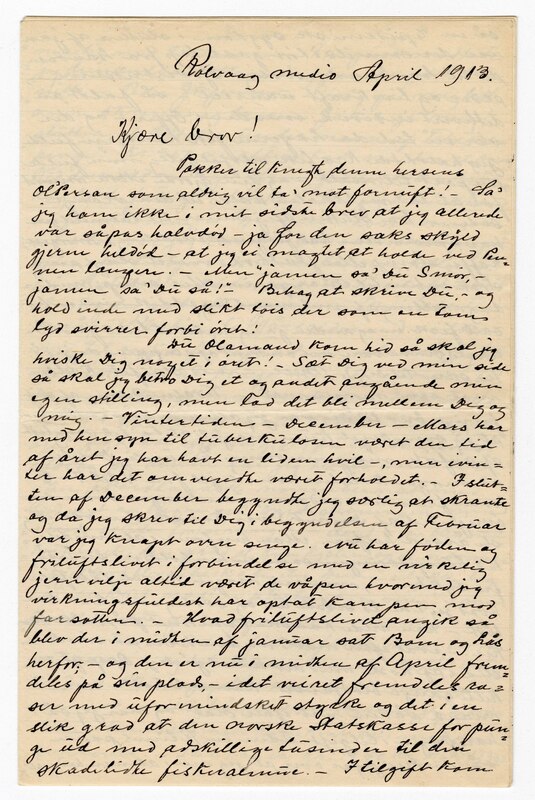 Rölvaag medio April 1913.
Kjære bror!
Pokker til knegt denne hersens
Ol'Persan som aldrig vil ta' mot fornuft! - Sa'
jeg ham ikke i mit sidste brev at jeg allerede
var såpas halvdød - ja for den saks skyld
gjerne heldød - at jeg ei magtet at holde ved Pen-
nen længere. - Men "jamen sa' Du Smör, -
jamen sa' Du så!" - Behag at skrive Du, - og
hold inde med slikt töis der som en tom
lyd svirrer forbi öret!
Du Olamand kom hid så skal jeg
hviske Dig noget i öret! - Sæt Dig ved min side
så skal jeg betro Dig et og andet angående min
egen stilling, men lad det bli mellem Dig og
mig. - Vintertiden - December - Mars har
med hensyn til tuberkulosen været den tid
af året jeg har havt en liden hvil -, men ivin-
ter har det omvendte været forholdet. - I slut-
ten af December begyndte jeg særlig at skrante
og da jeg skrev til Dig i begyndelsen af Februar
var jeg knapt oven senge. Nu har föden og
friluftslivet i forbindelse med en virkelig
jernvilje altid været de våpen hvormed jeg
virkningsfuldest har optat kampen mod
farsotten. - Hvad friluftslivet angik så
blev der i midten af januar sat Bom og Lås
herfor, - og den er nu i midten af April frem-
deles på sin plads, - idet veiret fremdeles ra-
ser med uformindsket styrke og det i en
slik grad at den norske Statskasse for pun-
ge ud med adskillige tusinder til den
skadelidte fiskeralmue. - I tilgift kom